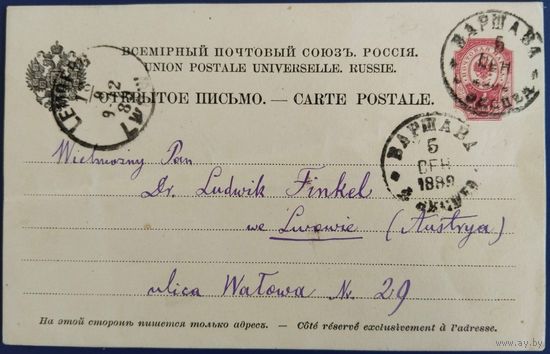 ВСЕМІРНЫЙ ПОЧТОВЫЙ СОЮЗЪ. РОССІЯ.
UNION POSTALE UNIVERSELLE. RUSSIE.
ОТКРЫТОЕ ПИСЬМО. — CARTE POSTALE.
ВАРШАВА
5
СЕН
ВАРШАВА
5
СЕН
1889
LEMBERG
Wielmożny Pan
Dr. Ludwik Finkel
we Lwowie (Austrya)
ulica Wałowa Nr. 29
На этой сторонѣ пишется только адресъ. — Côté réservé exclusivement à l'adresse.
www.ay.by